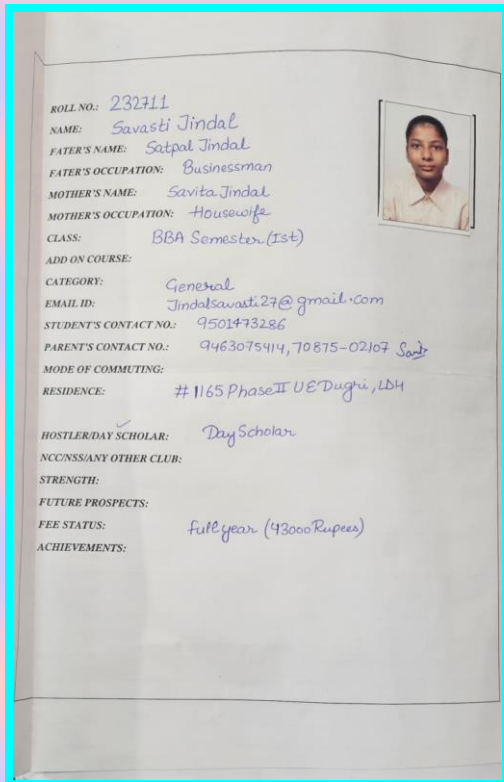 ROLL NO.: 232711
NAME: Savasti Jindal
FATER'S NAME: Satpal Jindal
FATER'S OCCUPATION: Businessman
MOTHER'S NAME: Savita Jindal
MOTHER'S OCCUPATION: Housewife
CLASS: BBA Semester (Ist)
ADD ON COURSE:
CATEGORY: General
EMAIL ID: Jindalsavasti27@gmail.com
STUDENT'S CONTACT NO.: 9501473286
PARENT'S CONTACT NO.: 9463075414, 70875-02107
MODE OF COMMUTING:
RESIDENCE: # 1165 Phase II UE Dugri, LDH
HOSTLER/DAY SCHOLAR: Day Scholar
NCC/NSS/ANY OTHER CLUB:
STRENGTH:
FUTURE PROSPECTS:
FEE STATUS: full year (43000 Rupees)
ACHIEVEMENTS: